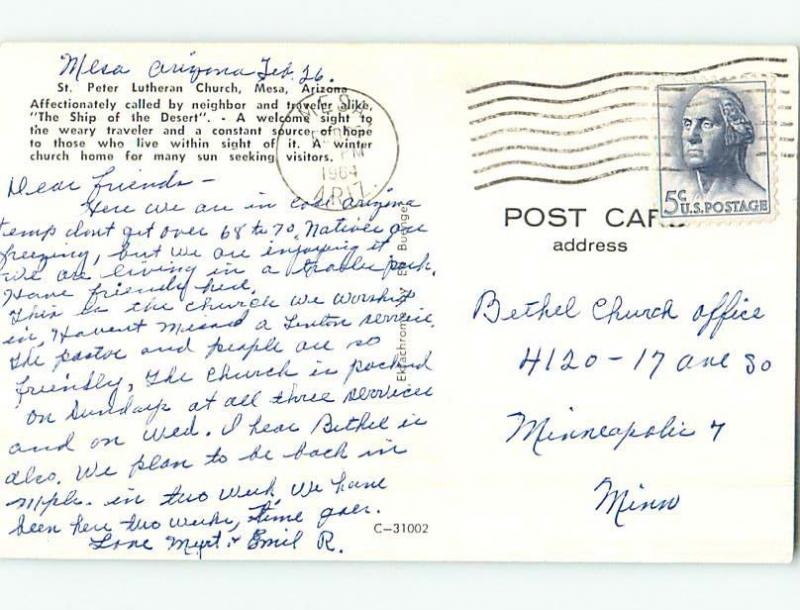 Mesa Arizona Feb. 26.
St. Peter Lutheran Church, Mesa, Arizona
Affectionately called by neighbor and traveler alike,
"The Ship of the Desert". - A welcome sight to
the weary traveler and a constant source of hope
to those who live within sight of it. A winter
church home for many sun seeking visitors.
MESA
PM
1964
ARIZ.
Dear friends -
Here we are in cool arizona
temp dont get over 68 to 70. Natives are
freezing, but we are enjoying it
We are living in a trailer park.
Have friendly here.
This is the church we worship
in, Havent missed a Lenten service.
The pastor and people are so
friendly, The church is packed
on Sundays at all three services
and on Wed. I hear Bethel is
also. We plan to be back in
Mpls. in two week, We have
been here two weeks, time goes.
Love Myrt & Emil R.
C-31002
Ektachrome by
5¢ U.S. POSTAGE
POST CARD
address
Bethel Church office
4120-17 ave So
Minneapolis 7
Minn